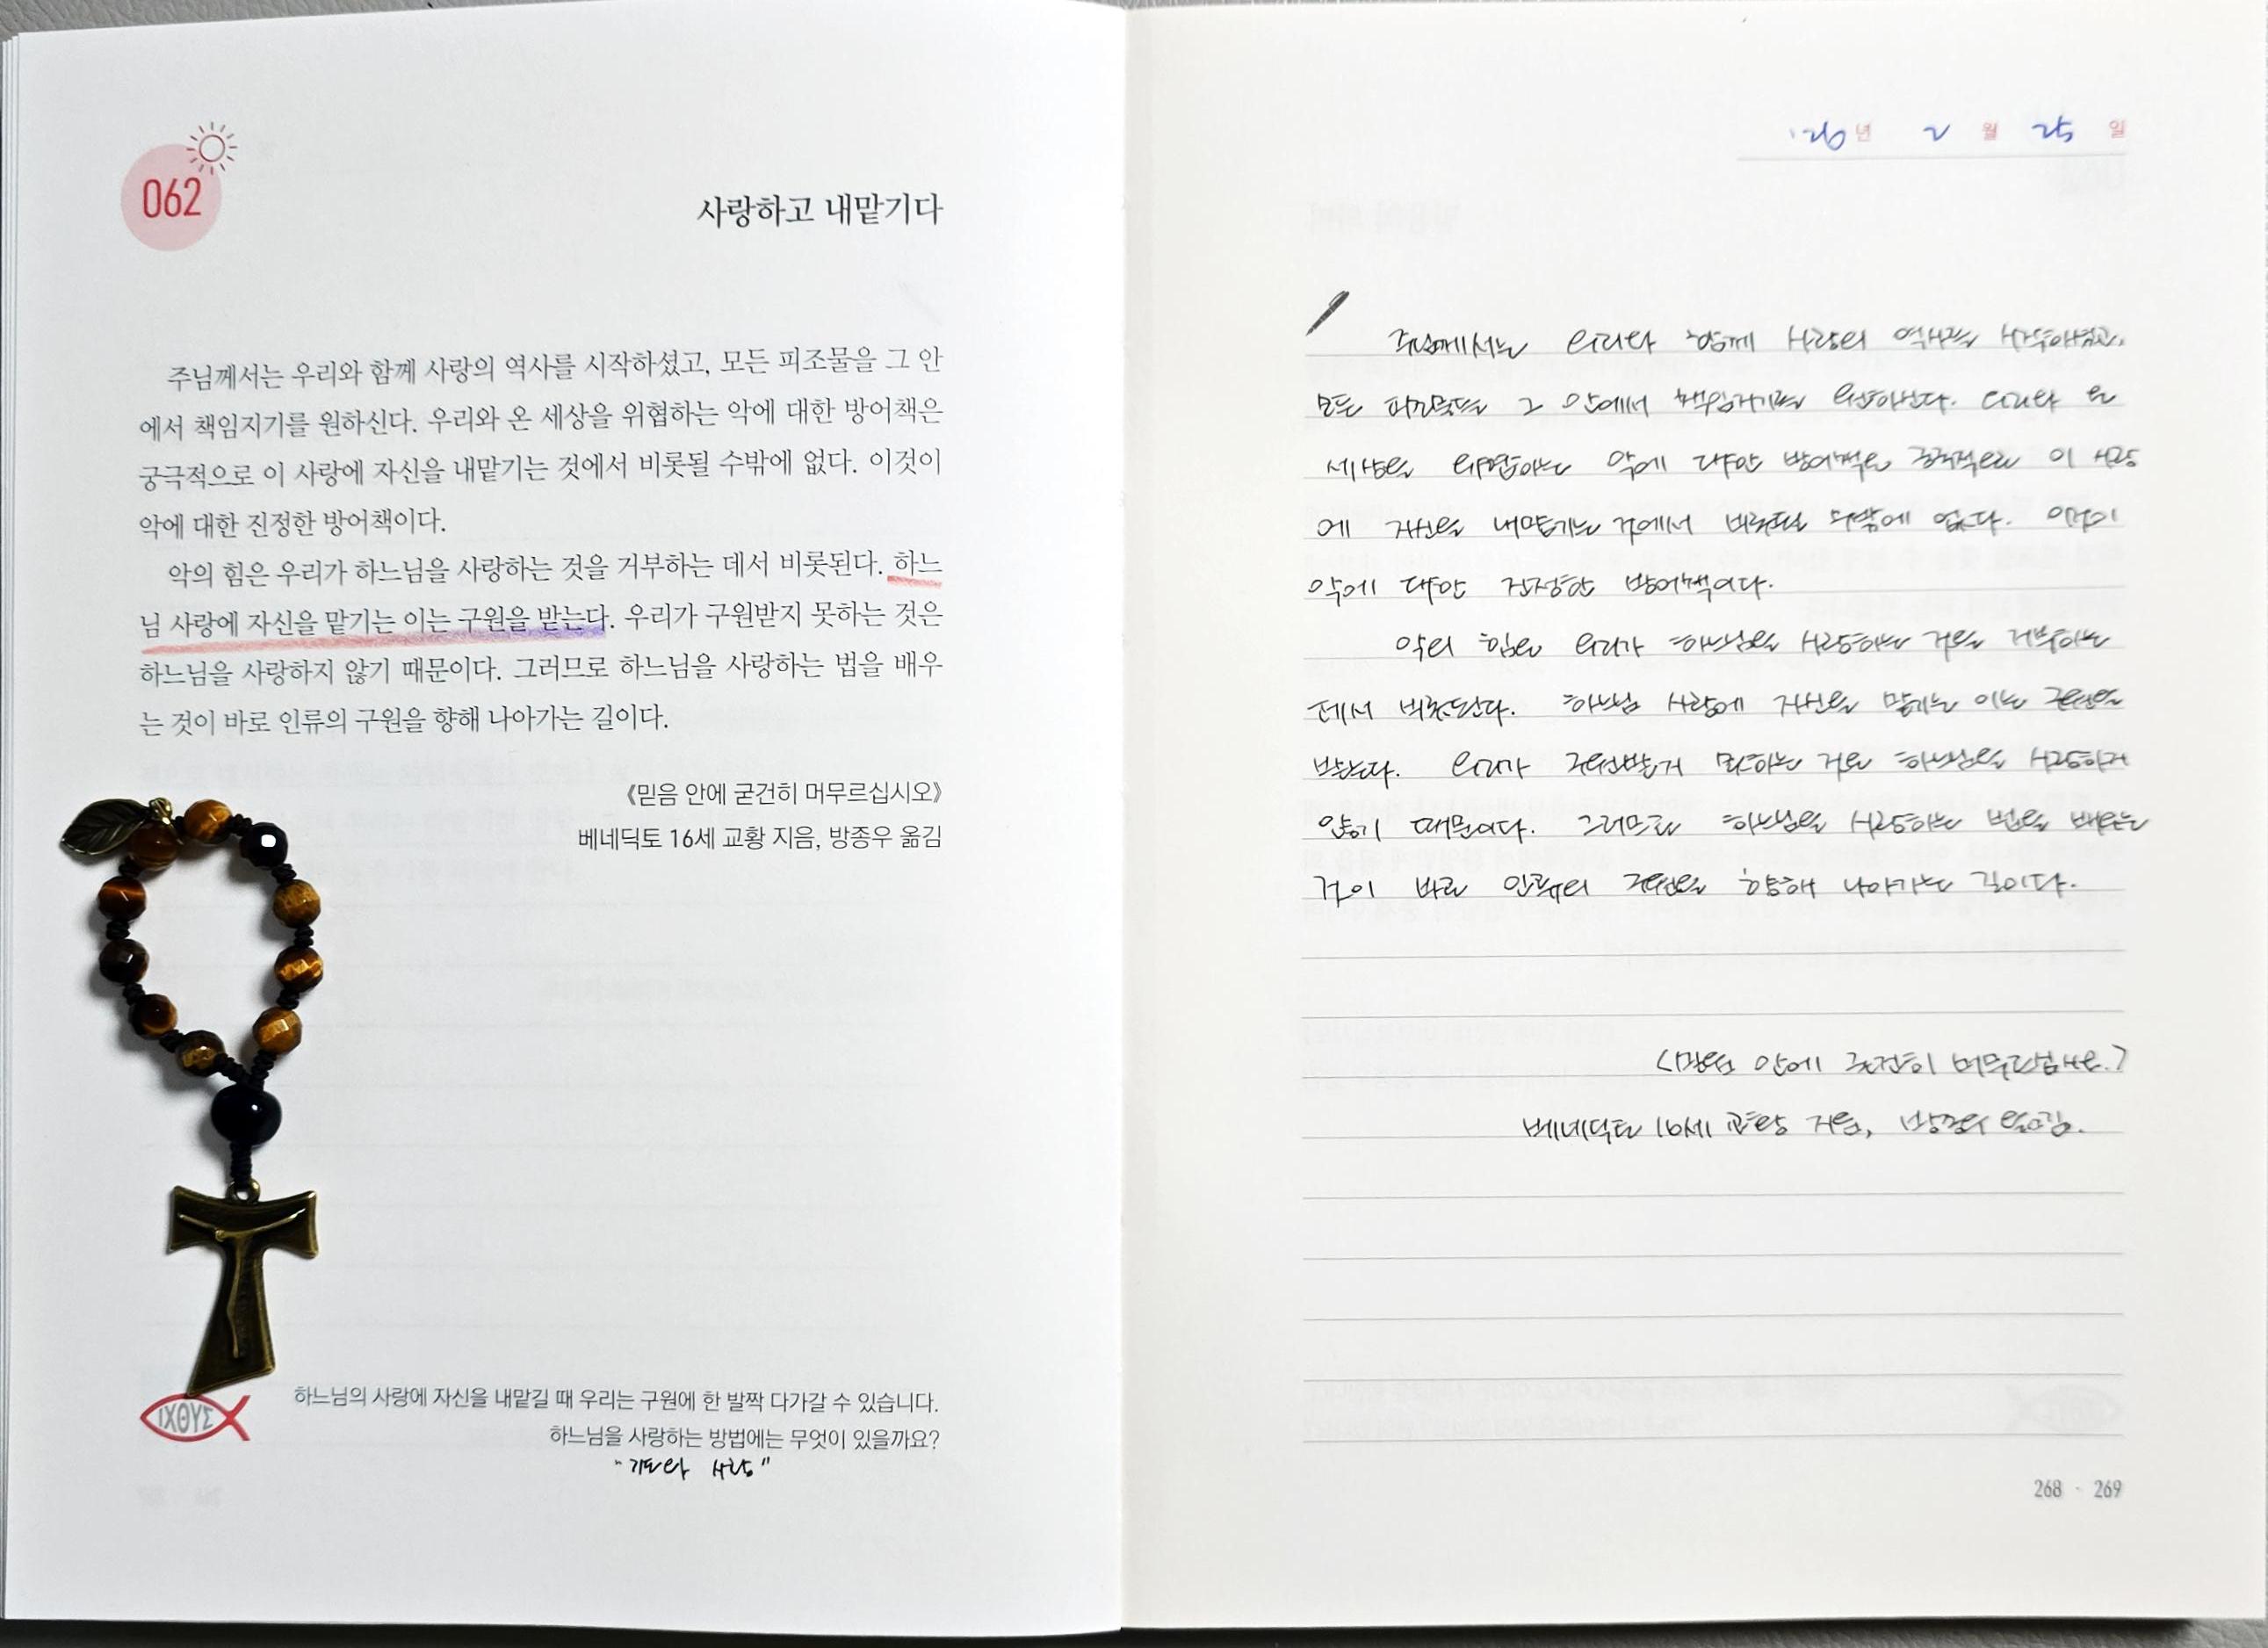 062
사랑하고 내맡기다
주님께서는 우리와 함께 사랑의 역사를 시작하셨고, 모든 피조물을 그 안
에서 책임지기를 원하신다. 우리와 온 세상을 위협하는 악에 대한 방어책은
궁극적으로 이 사랑에 자신을 내맡기는 것에서 비롯될 수밖에 없다. 이것이
악에 대한 진정한 방어책이다.
악의 힘은 우리가 하느님을 사랑하는 것을 거부하는 데서 비롯된다. 하느
님 사랑에 자신을 맡기는 이는 구원을 받는다. 우리가 구원받지 못하는 것은
하느님을 사랑하지 않기 때문이다. 그러므로 하느님을 사랑하는 법을 배우
는 것이 바로 인류의 구원을 향해 나아가는 길이다.
《믿음 안에 굳건히 머무르십시오》
베네딕토 16세 교황 지음, 방종우 옮김
ΙΧΘΥΣ
하느님의 사랑에 자신을 내맡길 때 우리는 구원에 한 발짝 다가갈 수 있습니다.
하느님을 사랑하는 방법에는 무엇이 있을까요?
"기도와 사랑"
'26년 2월 25일
주님께서는 우리와 함께 사랑의 역사를
모든 피조물을 그 안에서 책임지기를 원하신다. 우리와 온
세상을 위협하는 악에 대한 방어책은 궁극적으로 이 사랑
에 자신을 내맡기는 것에서 비롯될 수밖에 없다. 이것이
악에 대한 진정한 방어책이다.
악의 힘은 우리가 하느님을 사랑하는 것을 거부하는
데서 비롯된다. 하느님 사랑에 자신을 맡기는 이는 구원을
받는다. 우리가 구원받지 못하는 것은 하느님을 사랑하지
않기 때문이다. 그러므로 하느님을 사랑하는 법을 배우는
것이 바로 인류의 구원을 향해 나아가는 길이다.
<믿음 안에 굳건히
베네딕토 16세 교황 지음, 방종우 옮김.
268 · 269